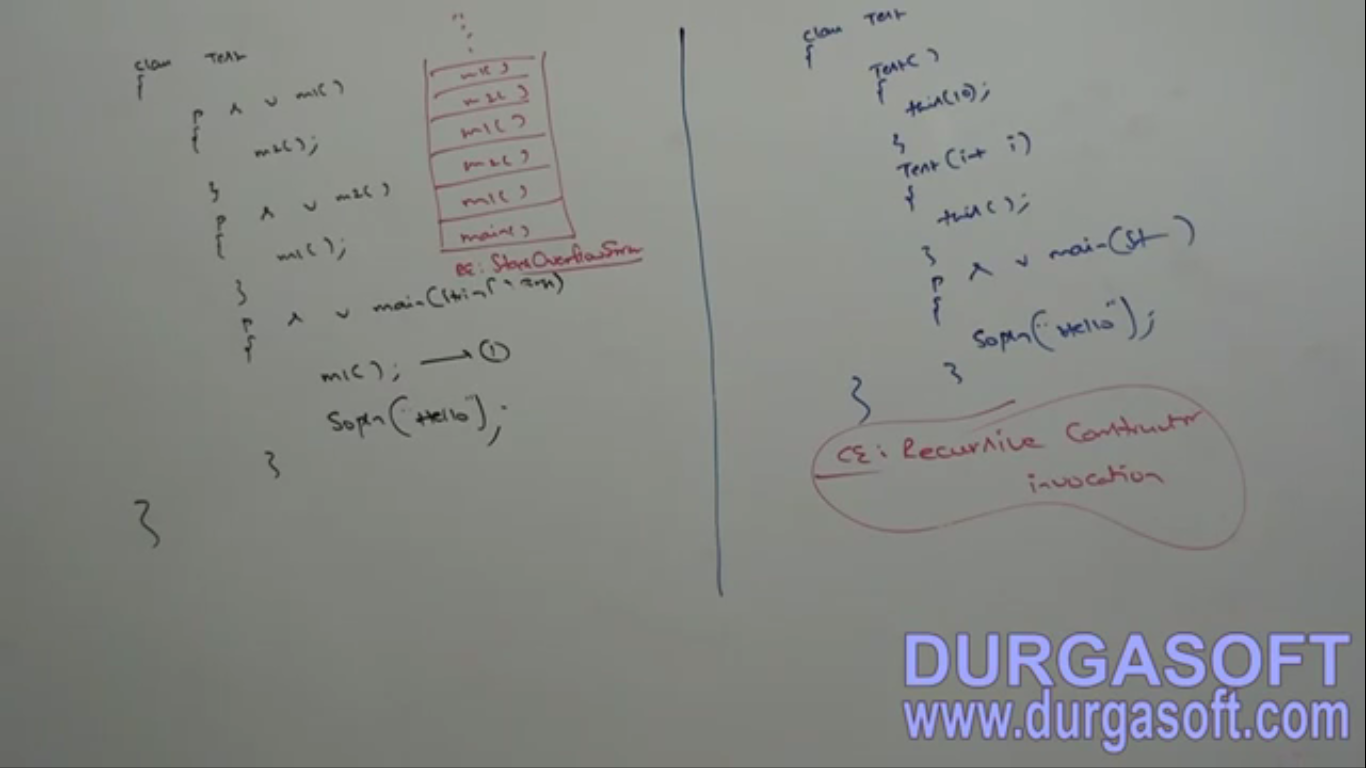 class Test
{
p s v m1()
{
m2();
}
p s v m2()
{
m1();
}
p s v main(String[] args)
{
m1(); → ①
Sopln("Hello");
}
}
m1()
m2()
m1()
m2()
m1()
main()
RE: StackOverflowError
class Test
{
Test()
{
this(10);
}
Test(int i)
{
this();
}
p s v main(St )
{
Sopln("Hello");
}
}
CE: Recursive Constructor
invocation
DURGASOFT
www.durgasoft.com